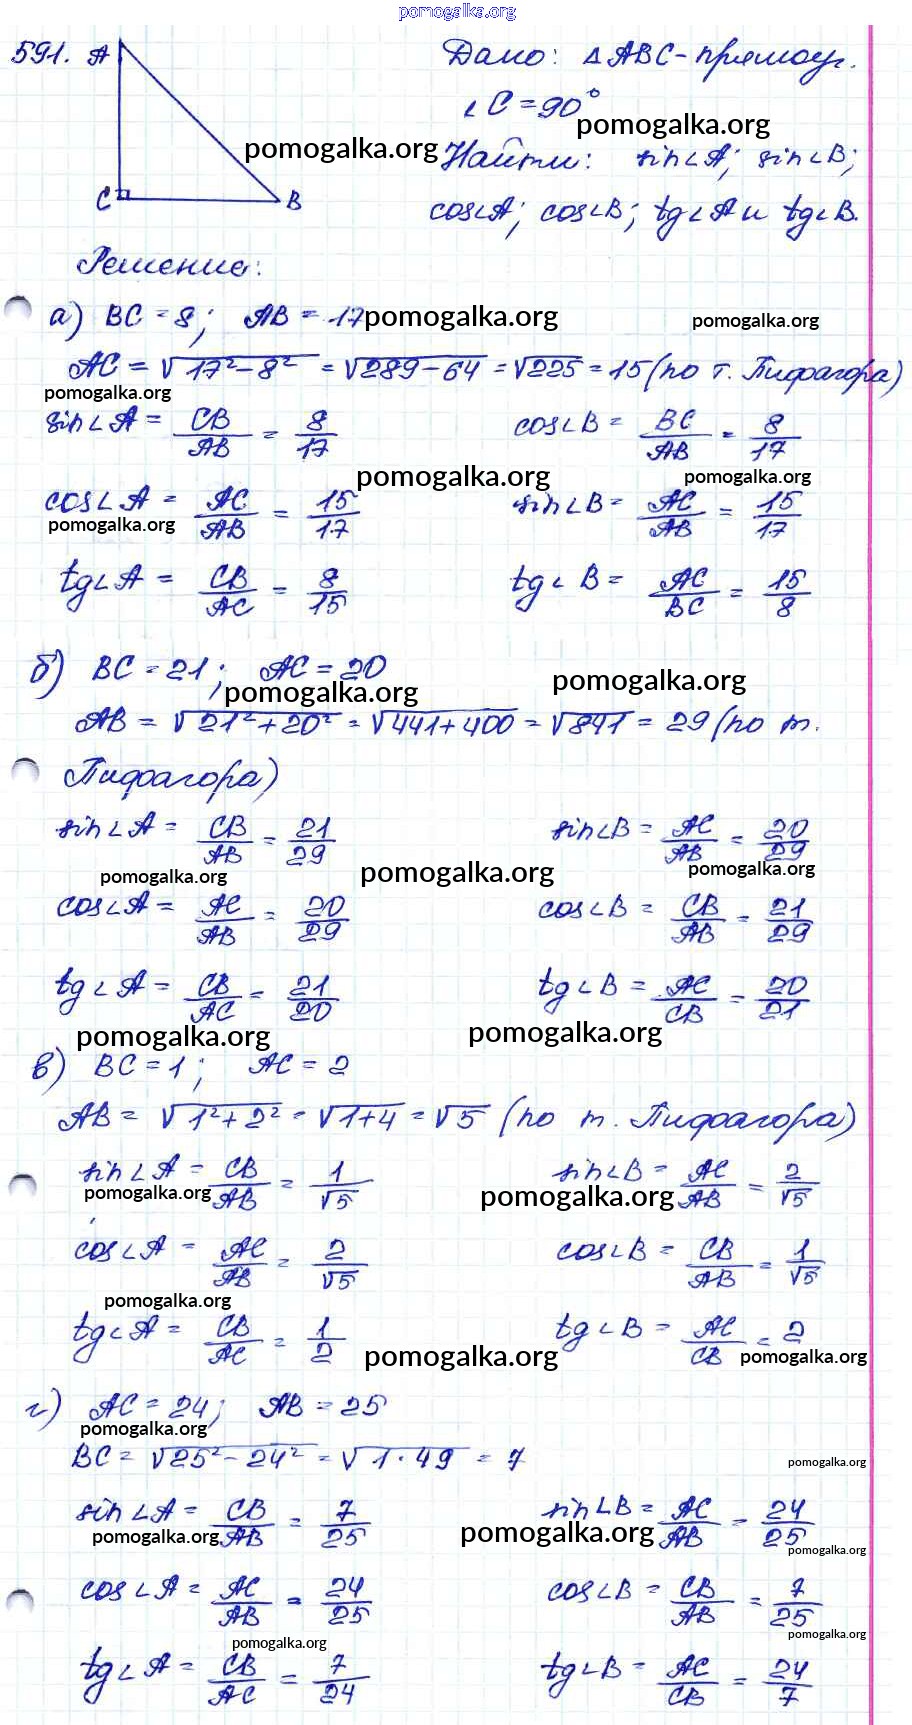 pomogalka.org
591. A Дано: △ABC - прямоуг.
∠C = 90°
pomogalka.org pomogalka.org
Найти: sin∠A; sin∠B;
C B cos∠A; cos∠B; tg∠A и tg∠B.
Решение:
а) BC = 8; AB = 17 pomogalka.org pomogalka.org
AC = √(17² - 8²) = √(289 - 64) = √225 = 15 (по т. Пифагора)
pomogalka.org
sin∠A = CB/AB = 8/17 cos∠B = BC/AB = 8/17
pomogalka.org pomogalka.org
cos∠A = AC/AB = 15/17 sin∠B = AC/AB = 15/17
pomogalka.org
tg∠A = CB/AC = 8/15 tg∠B = AC/BC = 15/8
б) BC = 21; AC = 20
pomogalka.org pomogalka.org
AB = √(21² + 20²) = √(441 + 400) = √841 = 29 (по т.
Пифагора)
sin∠A = CB/AB = 21/29 sin∠B = AC/AB = 20/29
pomogalka.org pomogalka.org pomogalka.org
cos∠A = AC/AB = 20/29 cos∠B = CB/AB = 21/29
tg∠A = CB/AC = 21/20 tg∠B = AC/CB = 20/21
pomogalka.org pomogalka.org
в) BC = 1; AC = 2
AB = √(1² + 2²) = √(1 + 4) = √5 (по т. Пифагора)
sin∠A = CB/AB = 1/√5 sin∠B = AC/AB = 2/√5
pomogalka.org pomogalka.org
cos∠A = AC/AB = 2/√5 cos∠B = CB/AB = 1/√5
pomogalka.org
tg∠A = CB/AC = 1/2 tg∠B = AC/CB = 2
pomogalka.org pomogalka.org
г) AC = 24; AB = 25
pomogalka.org
BC = √(25² - 24²) = √(1 · 49) = 7
pomogalka.org
sin∠A = CB/AB = 7/25 sin∠B = AC/AB = 24/25
pomogalka.org pomogalka.org pomogalka.org
cos∠A = AC/AB = 24/25 cos∠B = CB/AB = 7/25
pomogalka.org pomogalka.org
tg∠A = CB/AC = 7/24 tg∠B = AC/CB = 24/7